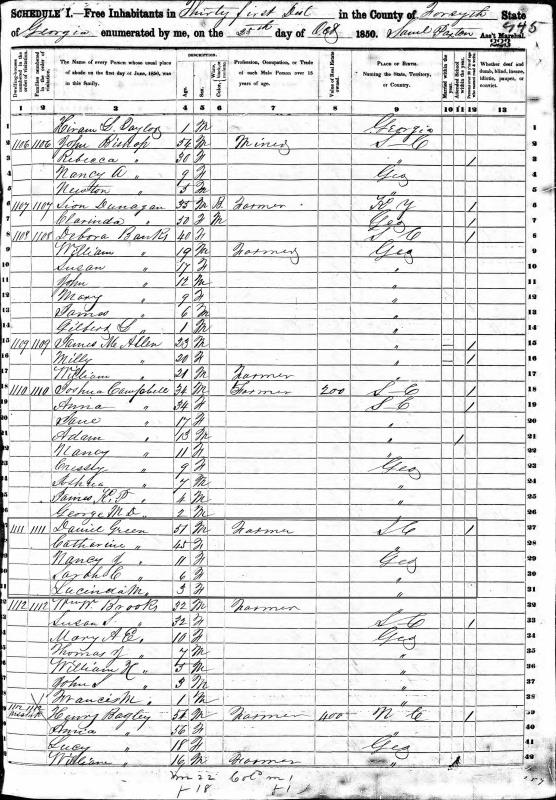 SCHEDULE I.—Free Inhabitants in Thirty first Dist in the County of Forsyth State
of Georgia enumerated by me, on the 25th day of Oct 1850. Ass't Marshal.
945
223
Dwelling-houses numbered in the order of visitation.
Families numbered in the order of visitation.
The Name of every Person whose usual place of abode on the first day of June, 1850, was in this family.
DESCRIPTION.
Age.
Sex.
Profession, Occupation, or Trade of each Male Person over 15 years of age.
Value of Real Estate owned.
PLACE OF BIRTH. Naming the State, Territory, or Country.
Married within the year.
Whether deaf and dumb, blind, insane, idiotic, pauper, or convict.
1 2 3 4 5 6 7 8 9 10 11 12 13
1 Hiram S. Taylor 1 M Georgia
2 1106 1106 John Bishop 34 M Miner S-C
3 Rebecca " 30 F " 1
4 Nancy A " 9 F Geo
5 Newtton " 5 M "
6 1107 1107 Sion Dunagan 35 M B Farmer K Y 1
7 Clarinda " 30 F M Geo 1
8 1108 1108 Debora Banks 40 F S C 1
9 William " 19 M Farmer Geo
10 Susan " 17 F "
11 John " 12 M "
12 Mary " 9 F "
13 James " 6 M "
14 Gilbert S " 1 M "
15 1109 1109 James M Allen 23 M " 1
16 Milly " 20 F " 1
17 William " 21 M Farmer "
18 1110 1110 Joshua Campbell 36 M Farmer 200 S-C 1
19 Anna " 34 F S C 1
20 Jane " 17 F "
21 Adam " 13 M " 1
22 Nancy " 11 F "
23 Cressy " 9 F Geo
24 " 7 M "
25 James K. P. " 4 M "
26 George M. D. " 2 M "
27 1111 1111 Daniel Green 51 M Farmer S C 1
28 Catharine " 45 F "
29 Nancy " 11 F Geo
30 Sarah C " 6 F "
31 Lucinda M. " 3 F "
32 1112 1112 Brooks 32 M Farmer
33 Susan S. " 32 F S-C 1
34 Mary A E. " 10 F Geo
35 Thomas " 7 M "
36 William H " 5 M "
37 John S " 3 M "
38 Francis M. " 1 M "
39 Henry Bagley 56 M Farmer 400 N C 1
40 Anna " 36 F "
41 Lucy " 18 F Geo
42 William " 16 M Farmer "
m 22 Col'd m 1
f 18 f 1